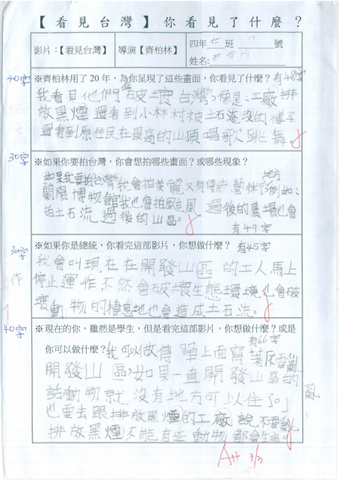 【看見台灣】你看見了什麼？
影片：【看見台灣】 導演【齊柏林】 四年 班 號
姓名：
40字 ※齊柏林用了20年，為你呈現了這些畫面，你看見了什麼？有48字
我看見他們破壞台灣，像是：工廠排
放黑煙還看到小林村被土石淹沒的樣子
還看到原住民在最高的山頭唱歌、跳舞
30字 ※如果你要拍台灣，你會想拍哪些畫面？或哪些現象？
如果我要拍台灣我會拍美麗又有傳統藝術的地方例如：
蘭陽博物館我也會拍颱風過後的農場也會
拍土石流過後的山區。
有49字
30字 ※如果你是總統，你看完這部影片，你想做什麼？有45字
我會叫現在在開發山區的工人馬上
停止運作不然會破壞生態環境也會破
壞動物的棲息地也會造成土石流。
作
40字 ※現在的你，雖然是學生，但是看完這部影片，你想做什麼？或是
你可以做什麼？有66字
我可以做傳單上面寫「請不要亂
開發山區如果一直開發山區的
話動物就沒有地方可以住了。」
也要去跟排放黑煙的工廠說不要亂
排放黑煙不然有些動物都會生病
亂
A++